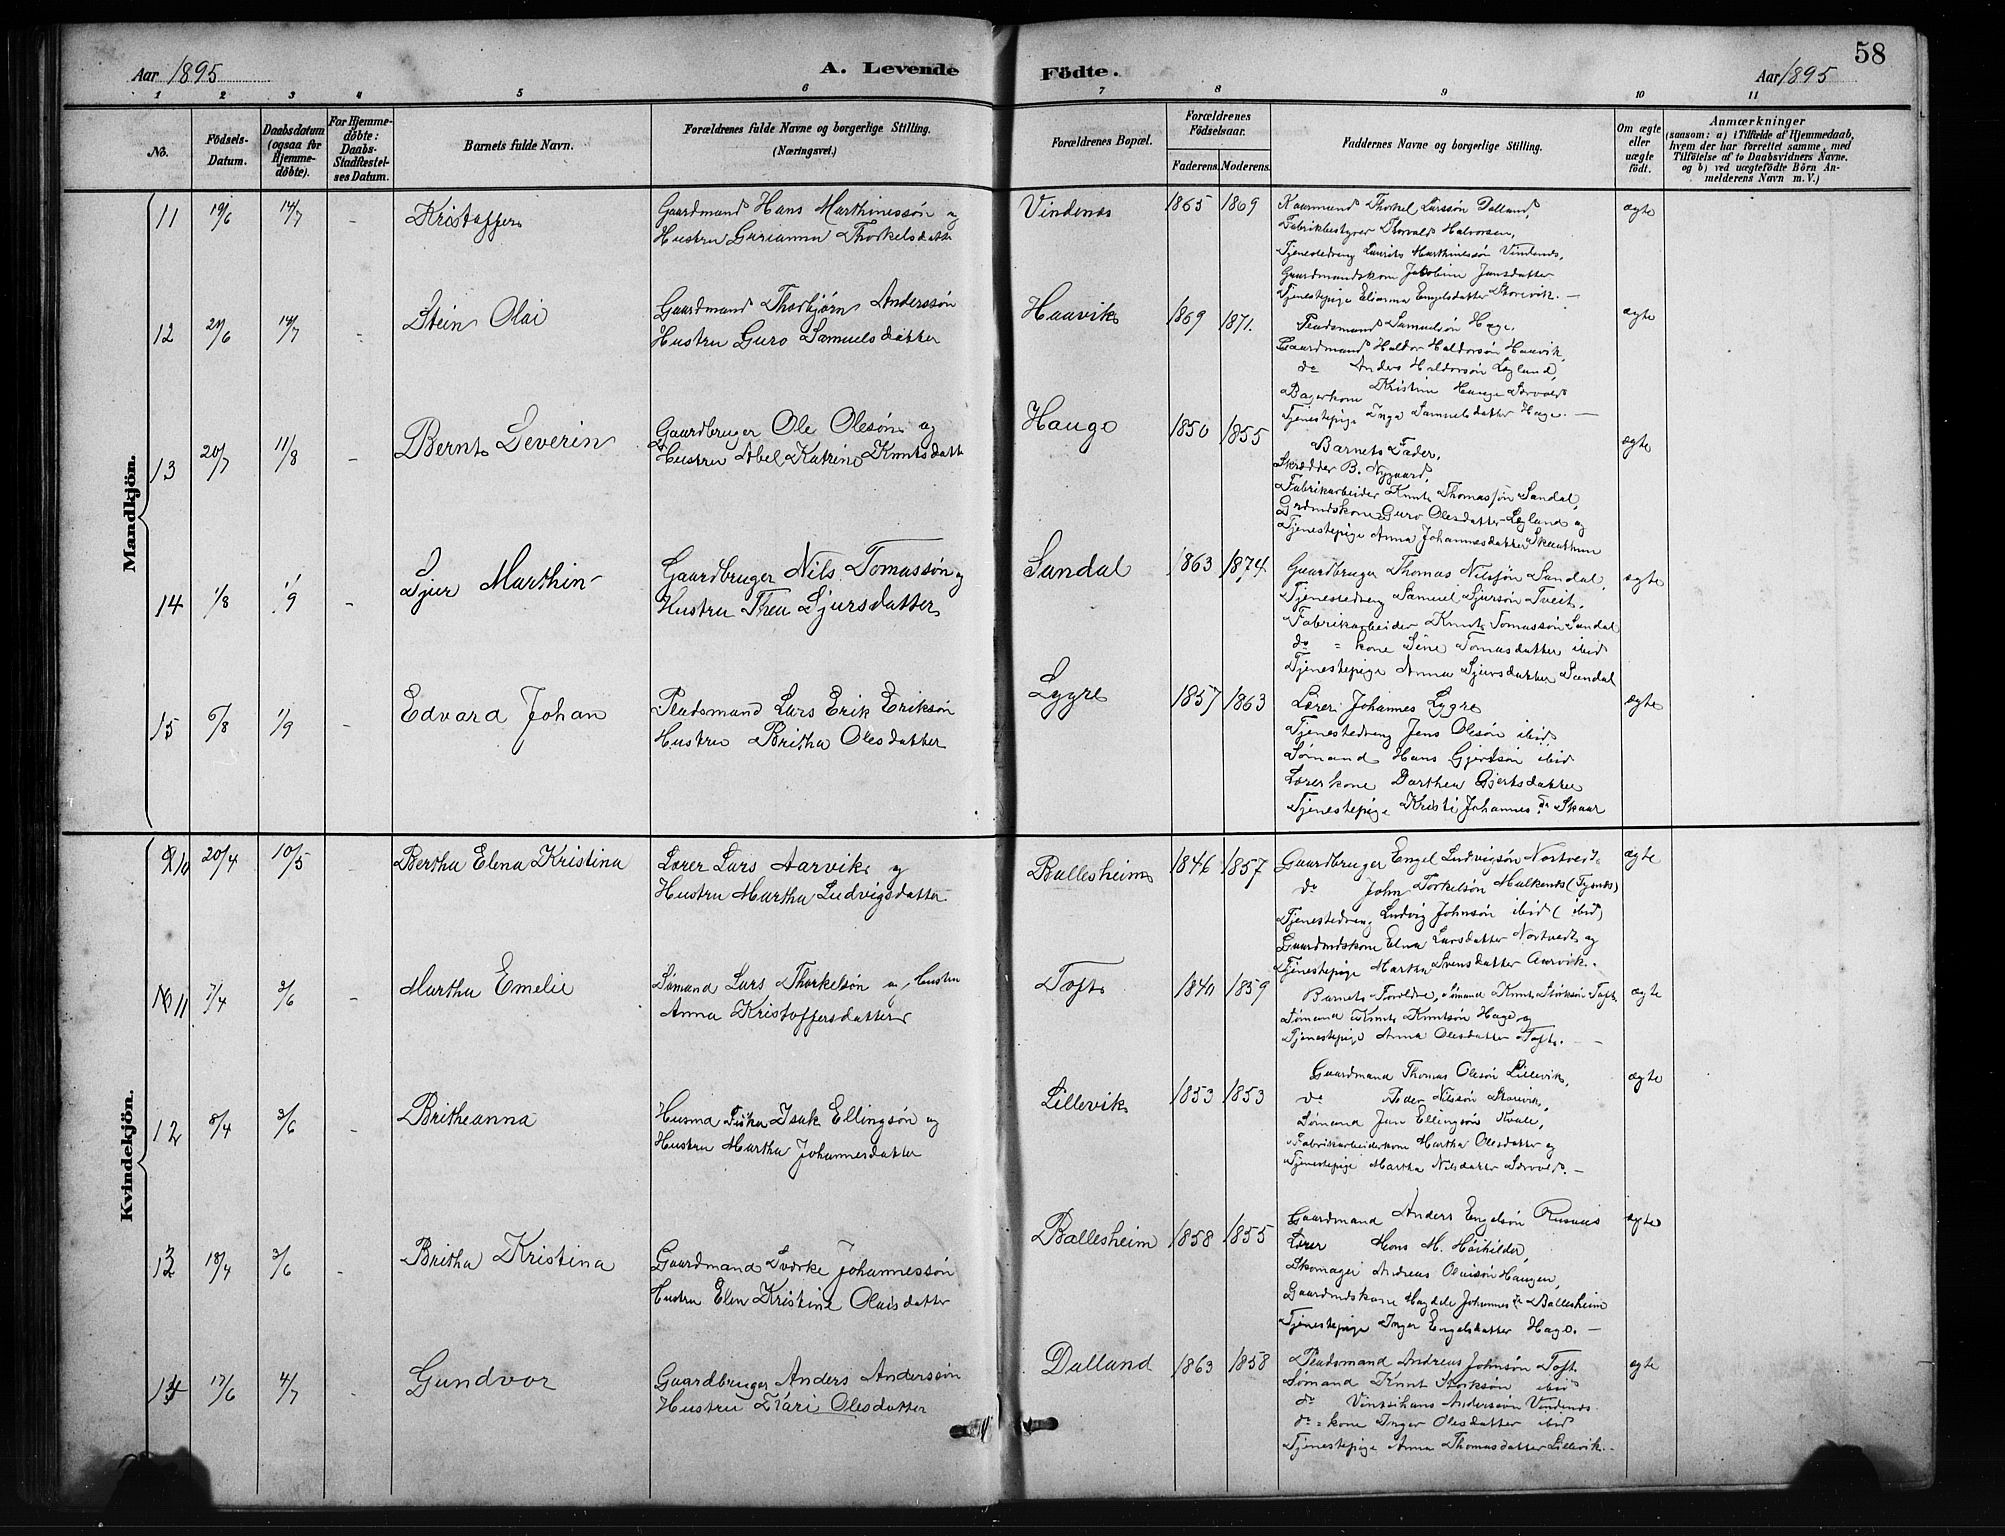 Aar 1895
A. Levende Födte.
Aar 1895
58
1 2 3 4 5 6 7 8 9 10 11
No.
Födsels-Datum.
Daabsdatum (ogsaa for Hjemmedöbte).
For Hjemmedöbte: Daabs-Stadfæstelses Datum.
Barnets fulde Navn.
Forældrenes fulde Navne og borgerlige Stilling.
(Næringsvei.)
Forældrenes Bopæl.
Forældrenes Födselsaar.
Faderens. Moderens.
Faddernes Navne og borgerlige Stilling.
Om ægte eller uægte födt.
Anmærkninger
(saasom: a) i Tilfælde af Hjemmedaab, hvem der har forrettet samme, med Tilföielse af to Daabsvidners Navne. og b) ved uægtefödte Börn Anmelderens Navn m. V.)
Mandkjön.
11 19/6 14/7 - Kristoffer
Gaardmand Hans Marthinessön og
Hustru Gurianna Thorkelsdatter
Vindenes 1865 1869
Kaarmand Thorkel Larssön Dalland,
Fabrikbestyrer Thorvald Halvorsen,
Tjenestedreng Laurits Marthinessön Vindenes,
Gaardmandskone Jakobine Jansdatter
Tjenestepige Elianna Engelsdatter Storevik. -
ægte
12 21/6 14/7 - Stein Olai
Gaardmand Thorbjörn Anderssön
Hustru Guro Samuelsdatter
Haavik 1869 1871.
Pladsmand Samuelsön Hage,
Gaardmand Haldor Haldorsön Haavik,
do Anders Haldorsön Lygland,
Bagerkone Kristine Hauge
Tjenestepige Inga Samuelsdatter Hage. -
ægte
13 20/7 11/8 - Bernt Severin
Gaardbruger Ole Olesön og
Hustru Abel Katrine Knutsdatt
Hauge 1850 1855
Barnets Fader,
Skrædder B. Nygaard,
Fabrikarbeider Knut Thomassön Sandal,
Grdmdskone Guro Olesdatter Lygland og
Tjenestepige Anna Johannesdatter
ægte
14 1/8 1/9 - Sjur Marthin
Gaardbruger Nils Tomassön og
Hustru Thea Sjursdatter
Sandal 1863 1874
Gaardbruger Thomas Nilssön Sandal,
Tjenestedreng Samuel Sjursön Tveit,
Fabrikarbeider Knut Tomassön Sandal
do = kone Sine Tomasdatter ibid
Tjenestepige Anna Sjursdatter Sandal
ægte
15 6/8 1/9 - Edvard Johan
Pladsmand Lars Erik Eriksön
Hustru Britha Olesdatter
Lygre 1857 1863
Lærer Johannes Lygre
Tjenestedreng Jens Olesön ibid,
Sömand Hans Gjertsön ibid
Lærerkone Dorthea Gjertsdatter
Tjenestepige Kristi Johannes dr Skaar
ægte
Kvindekjön.
No 10 20/4 10/5 Bertha Elena Kristina
Lærer Lars Aarvik og
Hustru Martha Ludvigsdatter
Ballesheim 1846 1857
Gaardbruger Engel Ludvigsön Nortvedt,
do John Torkelsön Malkenes (Tysnes)
Tjenestedreng Ludvig Johnsön ibid (ibid)
Gaardmdskone Elna Larsdatter Nortvedt og
Tjenestepige Martha Svensdatter Aarvik. -
ægte
No 11 7/4 3/6 - Martha Emelie
Sömand Lars Thorkelsön og Hustru
Anna Kristoffersdatter
Toft 1840 1859
Barnets Forældre, Sömand Knut Störksön Toft
Sömand Knut Knutsön Hage og
Tjenestepige Anna Olesdatter Toft. -
ægte
12 8/4 3/6 - Britheanna
Husmd Fisker Isak Ellingsön og
Hustru Martha Johannesdatter
Lillevik 1853 1853
Gaardmand Thomas Olesön Lillevik,
do Peder Nilssön Storevik,
Sömand Jan Ellingsön Kvale,
Fabrikarbeiderkone Martha Olesdatter og
Tjenestepige Martha Nilsdatter
ægte
13 18/4 3/6 - Britha Kristina
Gaardmand Sværke Johannessön
Hustru Elen Kristine Olaisdatter
Ballesheim 1858 1855
Gaardmand Anders Engelsön
Lærer Hans M. Höihilder,
Skomager Andreas Olaisön Haugen,
Gaardmdskone Magdele Johannes dr Ballesheim
Tjenestepige Inger Engelsdatter Hage. -
ægte
14 17/6 4/7 - Gundvor
Gaardbruger Anders Anderssön
Hustru Kari Olesdatter
Dalland 1863 1858
Pladsmand Andreas Johnsön Toft
Sömand Knut Störksön ibid
do Anderssön Vindenes
do = kone Inger Olesdatter ibid
Tjenestepige Anna Thomasdatter Lillevik. -
ægte